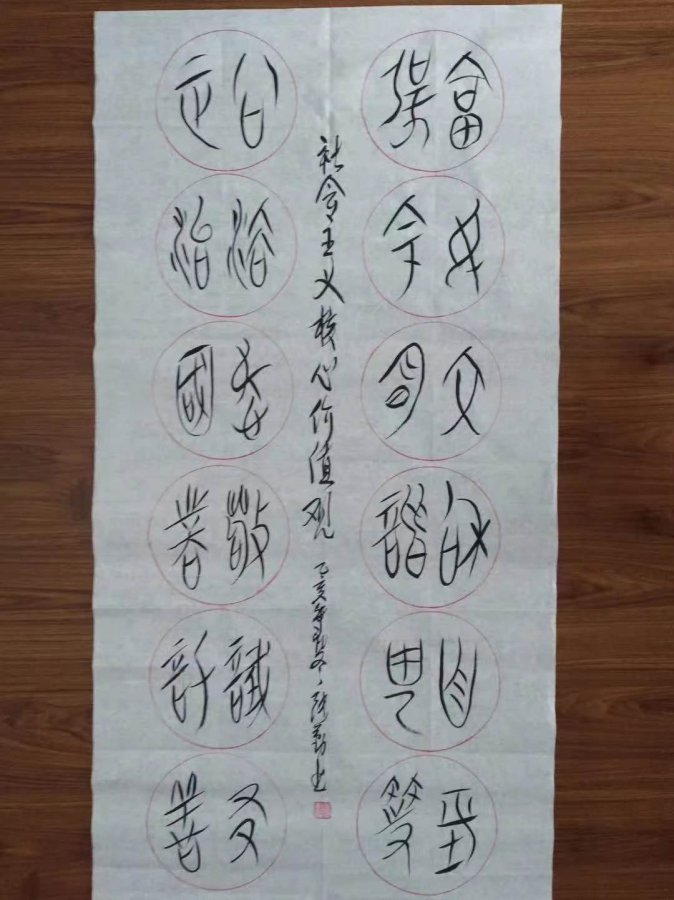 富强
民主
文明
和諧
自由
平等
公正
法治
爱國
敬業
誠信
友善
社会主义核心价值观
己亥年